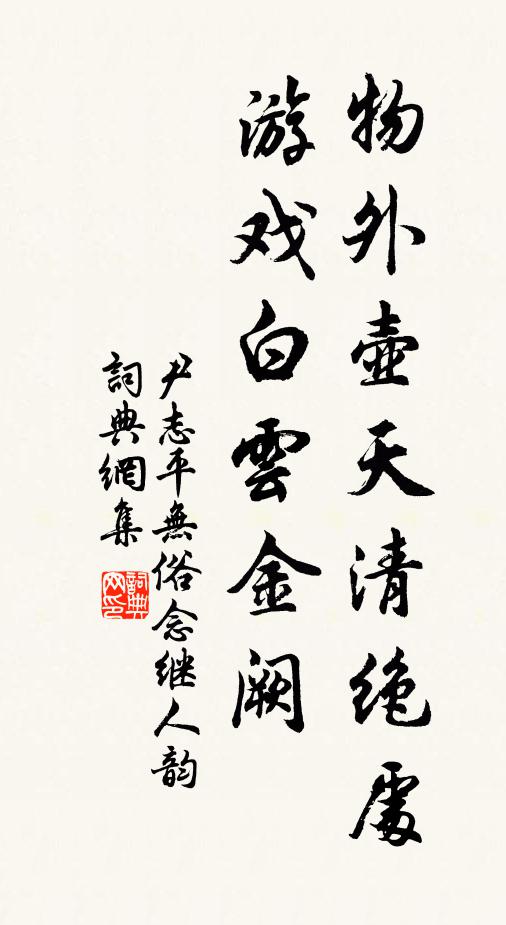 物外壺天清绝處
游戏白雲金闕
尹志平無俗念继人韵
詞典網集
詞典网印